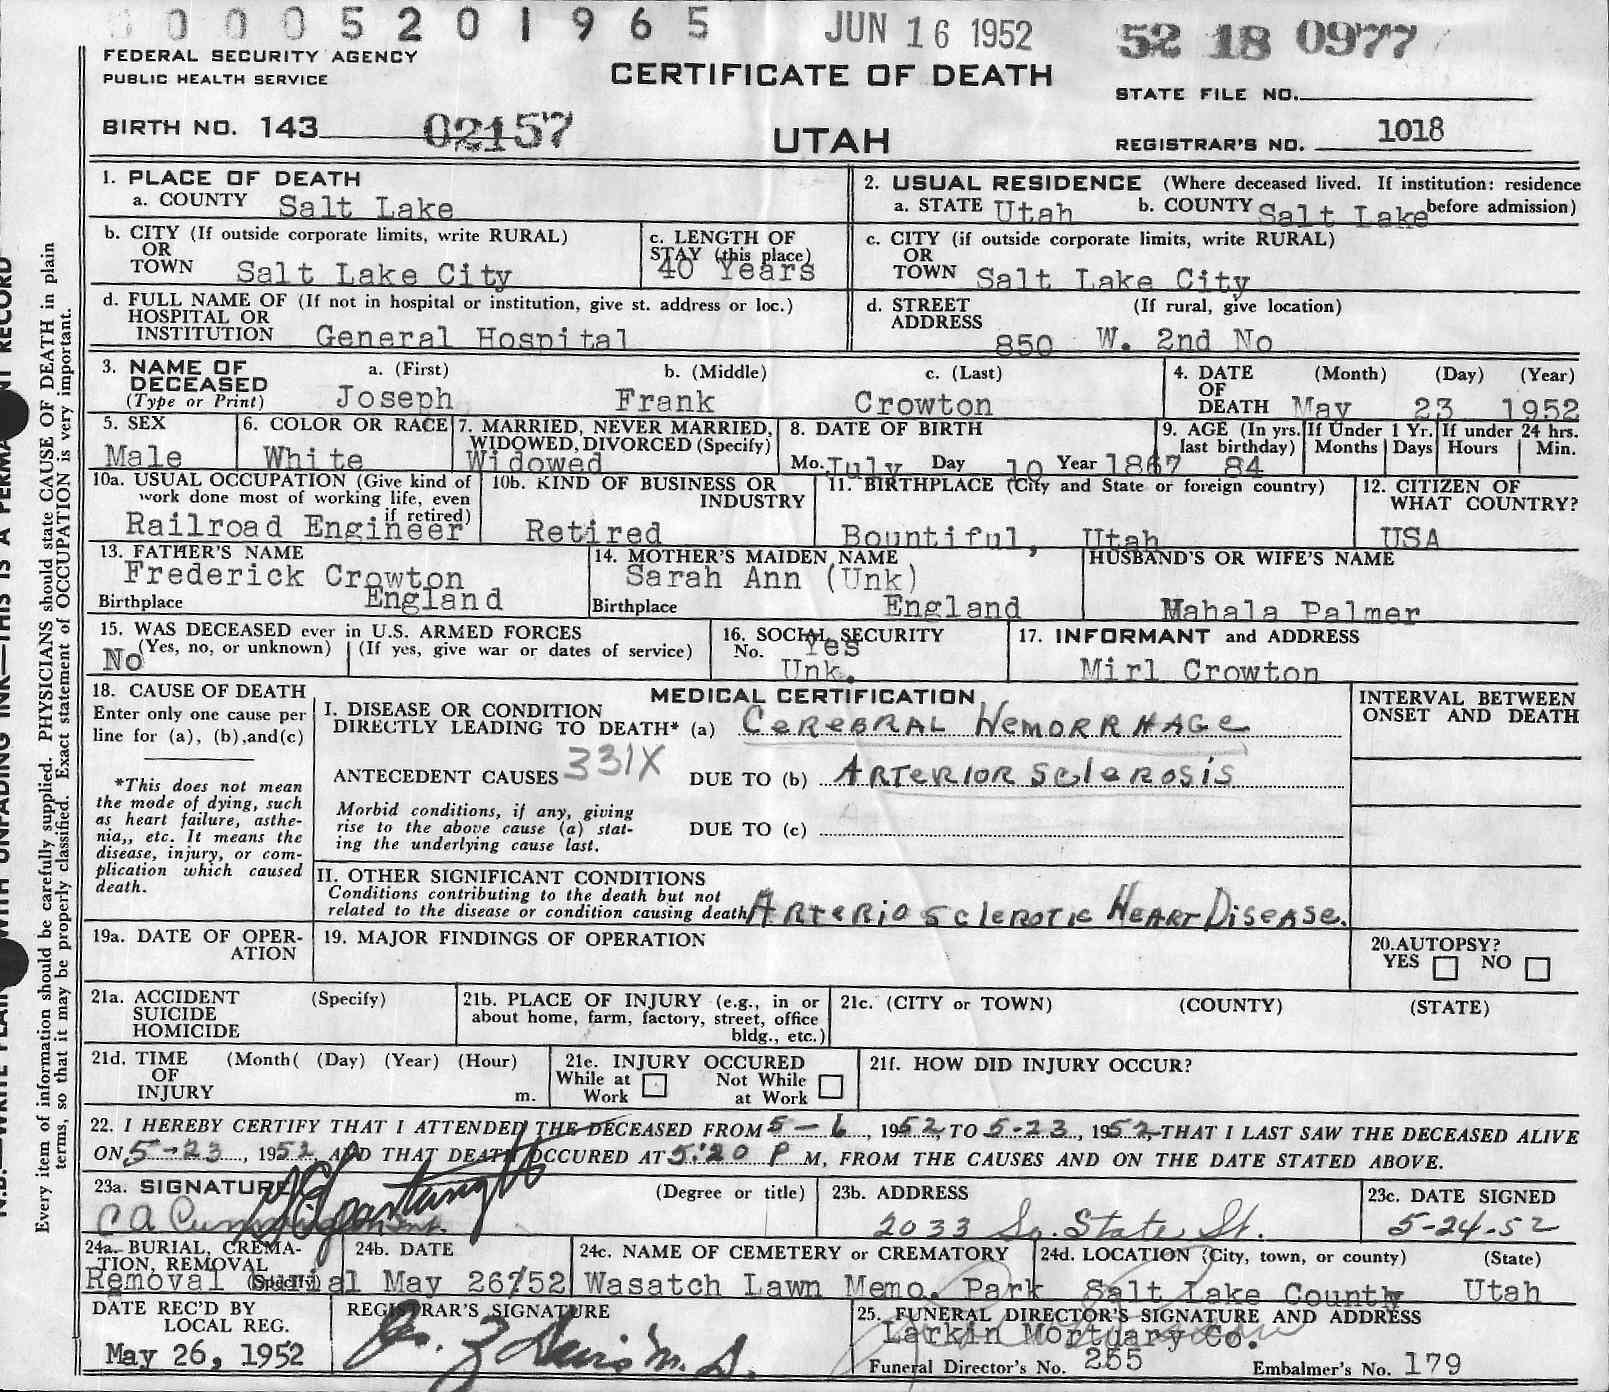 0005201965 JUN 16 1952 52 18 0977
FEDERAL SECURITY AGENCY
PUBLIC HEALTH SERVICE
CERTIFICATE OF DEATH
STATE FILE NO.
BIRTH NO. 143 02157
UTAH
REGISTRAR'S NO. 1018
1. PLACE OF DEATH
a. COUNTY Salt Lake
2. USUAL RESIDENCE (Where deceased lived. If institution: residence
a. STATE Utah b. COUNTY Salt Lake before admission)
b. CITY (If outside corporate limits, write RURAL)
OR
TOWN Salt Lake City
c. LENGTH OF
STAY (this place)
40 Years
c. CITY (if outside corporate limits, write RURAL)
OR
TOWN Salt Lake City
d. FULL NAME OF (If not in hospital or institution, give st. address or loc.)
HOSPITAL OR
INSTITUTION General Hospital
d. STREET (If rural, give location)
ADDRESS
850 W. 2nd No
3. NAME OF a. (First) b. (Middle) c. (Last)
DECEASED
(Type or Print) Joseph Frank Crowton
4. DATE (Month) (Day) (Year)
OF
DEATH May 23 1952
5. SEX
Male
6. COLOR OR RACE
White
7. MARRIED, NEVER MARRIED,
WIDOWED, DIVORCED (Specify)
Widowed
8. DATE OF BIRTH
Mo. July Day 10 Year 1867
9. AGE (In yrs.
last birthday)
84
If Under 1 Yr.
Months Days
If under 24 hrs.
Hours Min.
10a. USUAL OCCUPATION (Give kind of
work done most of working life, even
if retired)
Railroad Engineer
10b. KIND OF BUSINESS OR
INDUSTRY
Retired
11. BIRTHPLACE (City and State or foreign country)
Bountiful, Utah
12. CITIZEN OF
WHAT COUNTRY?
USA
13. FATHER'S NAME
Frederick Crowton
Birthplace England
14. MOTHER'S MAIDEN NAME
Sarah Ann (Unk)
Birthplace England
HUSBAND'S OR WIFE'S NAME
Mahala Palmer
15. WAS DECEASED ever in U.S. ARMED FORCES
(Yes, no, or unknown) (If yes, give war or dates of service)
No
16. SOCIAL SECURITY
No. Yes
Unk.
17. INFORMANT and ADDRESS
Mirl Crowton
18. CAUSE OF DEATH
Enter only one cause per
line for (a), (b),and(c)
*This does not mean
the mode of dying, such
as heart failure, asthe-
nia,, etc. It means the
disease, injury, or com-
plication which caused
death.
MEDICAL CERTIFICATION
I. DISEASE OR CONDITION
DIRECTLY LEADING TO DEATH* (a) Cerebral Hemorrhage
ANTECEDENT CAUSES 331X DUE TO (b) Arteriorsclerosis
Morbid conditions, if any, giving
rise to the above cause (a) stat-
ing the underlying cause last.
DUE TO (c)
INTERVAL BETWEEN
ONSET AND DEATH
II. OTHER SIGNIFICANT CONDITIONS
Conditions contributing to the death but not
related to the disease or condition causing death Arteriosclerotic Heart Disease.
19a. DATE OF OPER-
ATION
19. MAJOR FINDINGS OF OPERATION
20.AUTOPSY?
YES NO
21a. ACCIDENT (Specify)
SUICIDE
HOMICIDE
21b. PLACE OF INJURY (e.g., in or
about home, farm, factory, street, office
bldg., etc.)
21c. (CITY or TOWN) (COUNTY) (STATE)
21d. TIME (Month( (Day) (Year) (Hour)
OF
INJURY m.
21e. INJURY OCCURED
While at Not While
Work at Work
21f. HOW DID INJURY OCCUR?
22. I HEREBY CERTIFY THAT I ATTENDED THE DECEASED FROM 5-6, 1952, TO 5-23, 1952 THAT I LAST SAW THE DECEASED ALIVE
ON 5-23, 1952, AND THAT DEATH OCCURED AT 5:20 P M, FROM THE CAUSES AND ON THE DATE STATED ABOVE.
23a. SIGNATURE (Degree or title)
C A
23b. ADDRESS
2033 So. State St.
23c. DATE SIGNED
5-24-52
24a. BURIAL, CREMA-
TION, REMOVAL
(Specify)
Removal Burial
24b. DATE
May 26/52
24c. NAME OF CEMETERY or CREMATORY
Wasatch Lawn Memo. Park
24d. LOCATION (City, town, or county) (State)
Salt Lake County Utah
DATE REC'D BY
LOCAL REG.
May 26, 1952
REGISTRAR'S SIGNATURE
Davis M.D.
25. FUNERAL DIRECTOR'S SIGNATURE AND ADDRESS
Larkin Mortuary Co.
Funeral Director's No. 255 Embalmer's No. 179
Every item of information should be carefully supplied. PHYSICIANS should state CAUSE OF DEATH in plain
terms, so that it may be properly classified. Exact statement of OCCUPATION is very important.